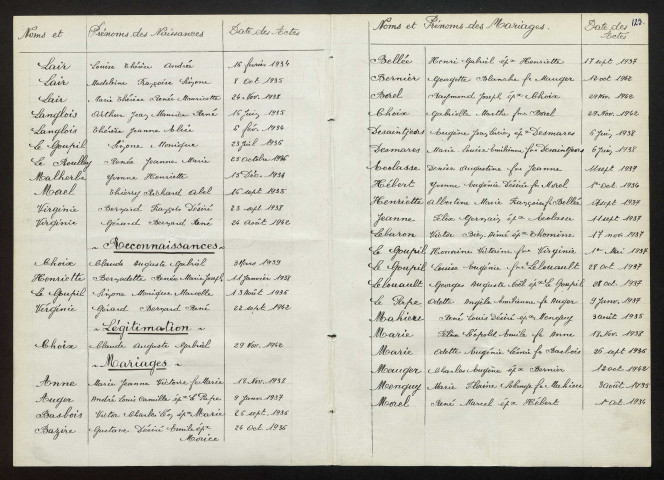 Noms et Prénoms des Naissances Date des Actes
Lair Louise Thérèse Andrée 16 février 1934
Lair Madeleine Françoise Simone 8 oct 1935
Lair Marie Thérèse Renée 24 Nov. 1938
Langlois Arthur Jean Maurice René 1935
Langlois Thérèse Jeanne 6 fév. 1934
Le Goupil Simone Monique 1936
Le Renée Jeanne Marie 25 octobre 1936
Malherbe Yvonne Henriette 15 Déc. 1934
Maël Thierry Richard Abel 16 sept 1935
Virginie Bernard François Désiré 23 sept 1938
Virginie Gérard Bernard René 24 août 1942
~ Reconnaissances ~
Choix Claude Auguste Gabriel 3 1939
Henriette Bernadette Renée Marie Joseph 11 Janvier 1938
Le Goupil Simone Monique Marcelle 13 Août 1936
Virginie Gérard Bernard René 22 sept 1942
~ Légitimation ~
Choix Claude Auguste Gabriel 29 Nov. 1942
~ Mariages ~
Anne Marie Jeanne Victoire fe Marie 18 Nov. 1938
Auger André Louis Camille épx Le Pape 9 Janvier 1937
Basbois Victor Charles Léon épx Marie 26 sept. 1936
Bazire Gustave Désiré Emile épx Morice 24 oct 1936
Noms et Prénoms des Mariages. Date des Actes 123.
Bellée Henri Gabriel épx Henriette 17 sept 1937
Bernier Georgette Blanche fe Mauger 12 oct 1942
Borel Raymond Joseph épx Choix 29 Nov. 1942
Choix Gabrielle Marthe fe Borel 29 Nov. 1942
Desaintjores Eugène Jean épx Desmares 6 Juin 1938
Desmares Marie Louise fe Desaintjores 6 Juin 1938
Denise Augustine fe Jeanne 11 sept 1937
Hébert Yvonne Eugénie Désirée fe Morel 1er oct. 1934
Henriette Albertine Marie Françoise fe Bellée 17 sept 1937
Jeanne Félix Germain épx 11 sept 1937
Lebaron Victor Aimé épx Thomine 17 nov. 1937
Le Goupil Honorine Victorine fe Virginie 1er Mai 1937
Le Goupil Louise Eugénie fe Lelouault 28 oct 1937
Lelouault Georges Auguste épx Le Goupil 28 oct 1937
Le Pape Odette Angèle fe Auger 9 Janv 1937
Mahieu René Louis Désiré épx Menguy 8 août 1935
Marie Léopold Emile fe Anne 18 Nov. 1938
Marie Odette Eugénie fe Basbois 26 sept 1936
Mauger Charles Eugène épx Bernier 12 oct 1942
Menguy Marie fe Mahieu 8 août 1935
Morel René Marcel épx Hébert 1er oct 1934